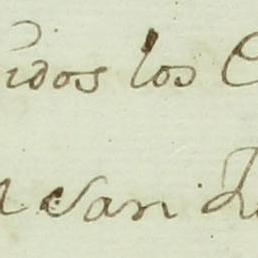 idos los C
San